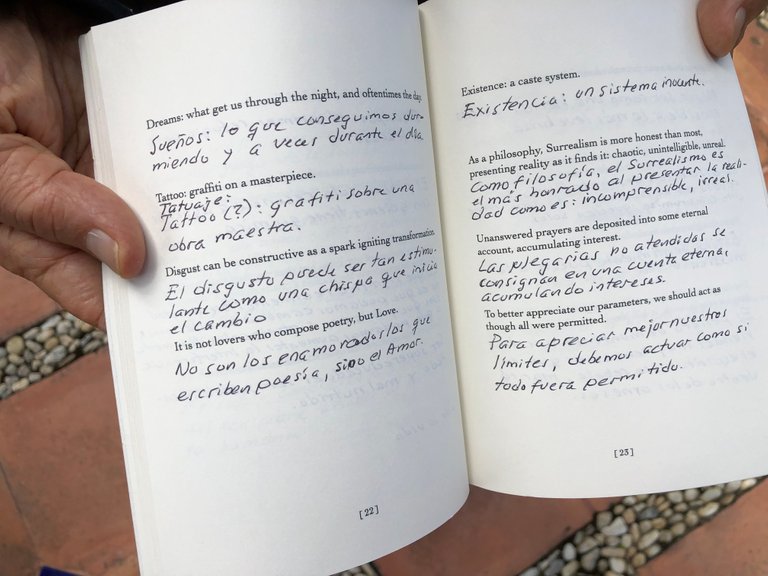 Dreams: what get us through the night, and oftentimes the day.
Sueños: lo que conseguimos dur-
miendo y a veces durante el día
Tattoo: graffiti on a masterpiece.
Tatuaje:
Tattoo (?): grafiti sobre una
obra maestra.
Disgust can be constructive as a spark igniting transformation.
El disgusto puede ser tan estimu-
lante como una chispa que inicia
el cambio
It is not lovers who compose poetry, but Love.
No son los enamorados los que
escriben poesía, sino el Amor.
[ 22 ]
Existence: a caste system.
Existencia: un sistema inocente.
As a philosophy, Surrealism is more honest than most,
presenting reality as it finds it: chaotic, unintelligible, unreal.
Como filosofía, el Surrealismo es
el más honrado al presentar la reali-
dad como es: incomprensible, irreal.
Unanswered prayers are deposited into some eternal
account, accumulating interest.
Las plegarias no atendidas se
consignan en una cuenta eterna,
acumulando intereses.
To better appreciate our parameters, we should act as
though all were permitted.
Para apreciar mejor nuestros
límites, debemos actuar como si
todo fuera permitido.
[ 23 ]